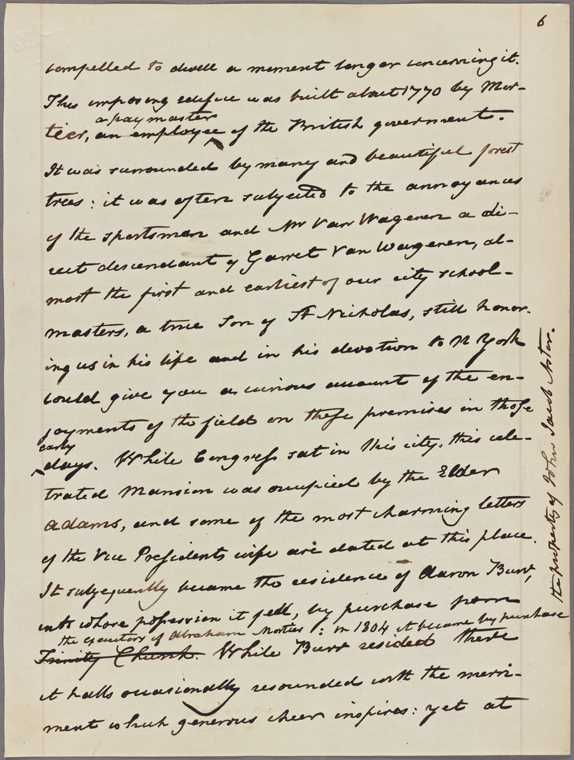 6
compelled to dwell a moment longer concerning it.
This imposing edifice was built about 1770 by Mor-
a paymaster
tier, an employee of the British government.
It was surrounded by many and beautiful forest
trees: it was often subjected to the annoyances
of the sportsman and Mr Van Wagenen a di-
rect descendant of Garret Van Wagenen, al-
most the first and earliest of our city school-
masters, a true Son of St Nicholas, still honor-
ing us in his life and in his devotion to N York
could give you a curious account of the en-
joyments of the field on these premises in those
early
days. While Congress sat in this city, this cele-
trated Mansion was occupied by the Elder
Adams, and some of the most charming letters
of the Vice Presidents wife are dated at this place.
It subsequently became the residence of Aaron Burr,
into whose possession it fell, by purchase from
the executors of Abraham Mortier: in 1804 it became by purchase
the property of John Jacob Astor.
Trinity Church. While Burr resided there
it halls occasionally resounded with the merri-
ment which generous cheer inspires: yet at